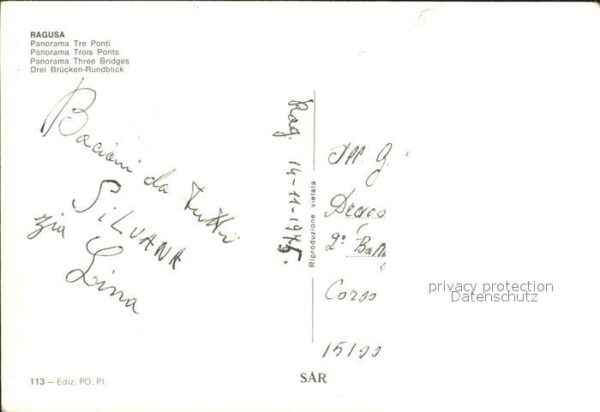 RAGUSA
Panorama Tre Ponti
Panorama Trois Ponts
Panorama Three Bridges
Drei Brücken-Rundblick
Bacioni da tutti
SiLVANA
zia Lina
Rag. 14-11-1975
Riproduzione vietata
2° Batt
Corso
15100
privacy protection
Datenschutz
113 – Ediz. PO. PI.
SAR
5